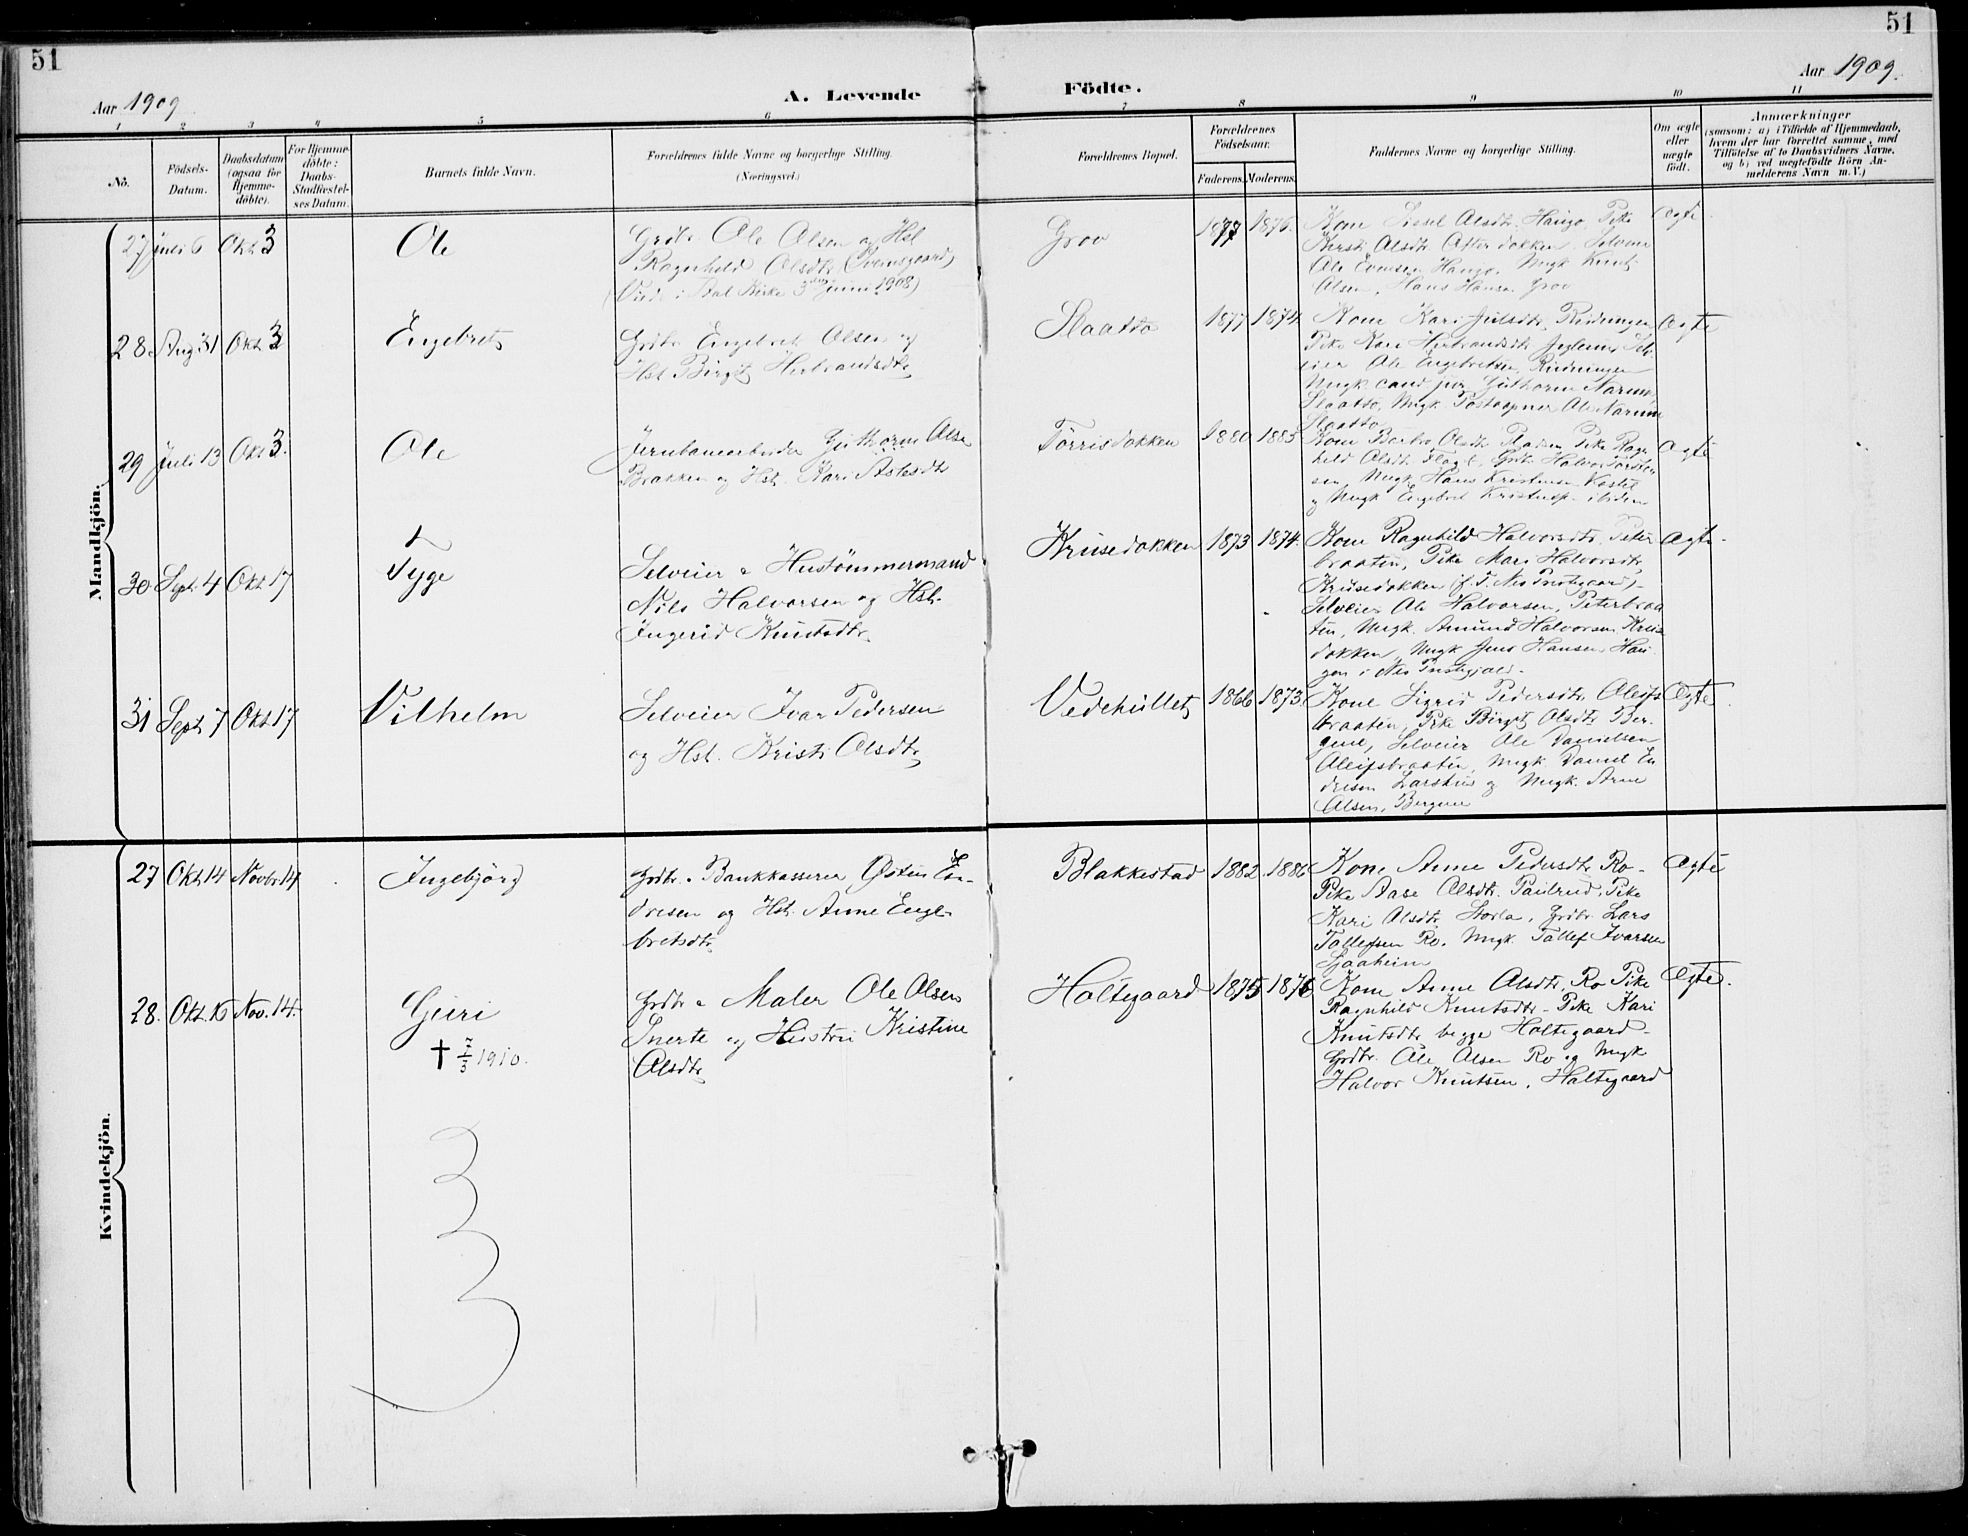 51
51
Aar 1909
A. Levende
Födte.
Aar 1909.
1 2 3 4 5 6 7 8 9 10 11
No.
Födsels-
Datum.
Daabsdatum
(ogsaa for
Hjemme-
döbte).
For Hjemme-
döbte:
Daabs-
Stadfæstel-
ses Datum.
Barnets fulde Navn.
Forældrenes fulde Navne og borgerlige Stilling.
(Næringsvei.)
Forældrenes Bopæl.
Forældrenes
Födselsaar.
Faderens.
Moderens.
Faddernes Navne og borgerlige Stilling.
Om ægte
eller
uægte
födt.
Anmærkninger
(saasom: a) i Tilfælde af Hjemmedaab,
hvem der har forrettet samme, med
Tilföielse af to Daabsvidners Navne,
og b) ved uægtefödte Börn An-
melderens Navn m. V.)
Mandkjön.
27 Juli 6 Okt 3
Ole
Grdbr. Ole Olsen og Hst.
Ragnhild Olsdtr
(Viede i Aal Kirke 3 Juni 1908)
Grov
1877 1876.
Kone Sissel Olsdtr. Haugo, Pike
Kersti Olsdtr.
Ole Evensen Haugo. Ungk. Knut
Olsen, Hans Hansen Grov
Ægte
28. Aug 31 Okt 3
Engebret
Grdbr. Engebret Olsen og
Hst. Birgit Herbrandsdtr.
Slaatto
1877 1874.
Kone Kari Juلsdtr. Ridningen
Pike Kari Herbrandsdtr. Selv-
eier Ole Engebretsen, Ridningen
Ungk. cand. jur. Guthorm Narum,
Slaatto, Ungk. Postaapner Ole Narum
Slaatto
Ægte
29 Juli 13 Okt 3.
Ole
Jernbanearbeider Guthorm Olsen
Brakken og Hst. Kari Aslesdtr
Torrisdokken
1880 1885
Kone Barbro Olsdtr. Pladsen, Pike Ragn-
hild Olsdtr. Grdb. Halvor Torsten-
sen, Ungk. Hans Kristensen
og Ungk. Engebret ibidem
Ægte
30 Sept. 4 Okt 17
Tyge
Selveier & Hustömmermand
Nils Halvorsen og Hst.
Ingerid Knutsdtr.
Krusedokken
1873 1874.
Kone Ragnhild Halvorsdtr. Peter-
braaten, Pike Mari Halvorsdtr,
Krusedokken (f. T. Nes Prestegaard)
Selveier Ole Halvorsen, Peterbraa-
ten, Ungk. Amund Halvorsen Kruse-
dokken, Ungk. Jens Hansen, Hau-
gen i Nes Prestegjeld.
Ægte.
31 Sept. 7 Okt 17
Vilhelm
Selveier Ivar Pedersen
og Hst. Kristi Olsdtr.
Vedehullet
1866 1873.
Kone Sigrid Pedersdtr. Oleifs-
braaten, Pike Birgit Olsdtr. Ber-
gene, Selveier Ole Danielsen
Oleifsbraaten, Ungk. Daniel En-
dresen Larshus og Ungk. Arne
Olsen, Bergene
Ægte.
Kvindekjön.
27 Okt. 14 Novbr. 14
Ingebjörg
Grdbr. & Bankkasserer Østen En-
dresen og Hst. Anne Enge-
bretsdtr.
Blakkestad
1882. 1886
Kone Anne Pedersdtr. Ro-
Pike Aase Olsdtr. Paulrud, Pike
Kari Olsdtr. Storla, Grdbr. Lars
Tollefsen Ro. Ungk. Tollef Ivarsen
Sjaaheim
Ægte
28. Okt. 16 Nov. 14.
Guri
† 7/3 1910.
Grdbr & Maler Ole Olsen
Snerte og Hustru Kristine
Olsdtr
Holtegaard
1875 1876
Kone Anne Olsdtr. Ro Pike
Ragnhild Knutsdtr. Pike Kari
Knutsdtr. begge Holtegaard.
Grdbr. Ole Olsen Ro og Ungk
Halvor Knutsen, Holtegaard
Ægte.